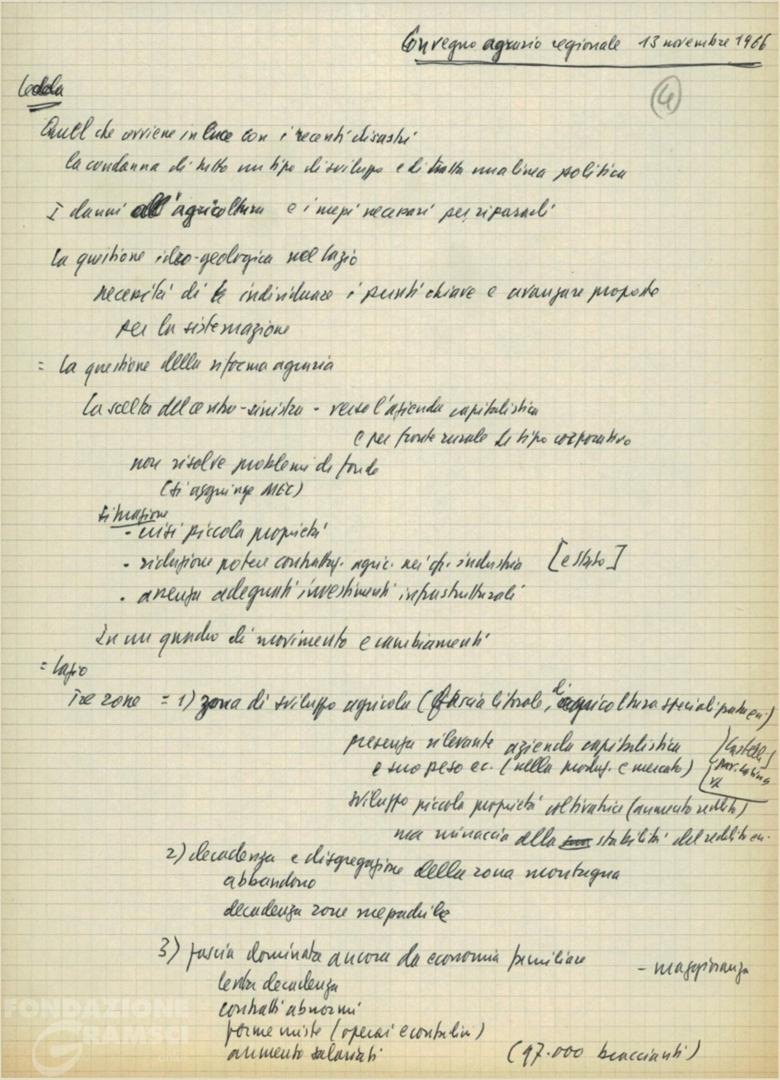 Convegno agrario regionale 13 novembre 1966
Ledda
4
Quel che avviene in luce con i recenti disastri
la condanna di tutto un tipo di sviluppo e di tutta una linea politica
I danni all'agricoltura e i mezzi necessari per ripararli
La questione idro-geologica nel Lazio
necessità di individuare i punti chiave e avanzare proposte
per la sistemazione
= La questione della riforma agraria
La scelta del centro-sinistra - verso l'azienda capitalistica
e per fronte rurale di tipo corporativo
non risolve problemi di fondo
(si aggiunge MEC)
situazione
- crisi piccola proprietà
- riduzione potere contratt. agric. nei cfr. industria [e stato]
- assenza adeguati investimenti infrastrutturali
In un quadro di movimento e cambiamenti
= Lazio
Tre zone = 1) zona di sviluppo agricolo (fascia litorale, di agricoltura specializzata ecc.)
presenza rilevante azienda capitalistica
e suo peso ec. (nella produz. e mercato)
Castelli
sviluppo piccola proprietà coltivatrice (aumento reddito)
ma minaccia alla stabilità del reddito ecc.
2) decadenza e disgregazione della zona montagna
abbandono
decadenza zone mezzadrili
3) fascia dominata ancora da economia familiare - maggioranza
lenta decadenza
contratti abnormi
forme miste (operai e contadini)
aumento salariati (97.000 braccianti)
FONDAZIONE
GRAMSCI